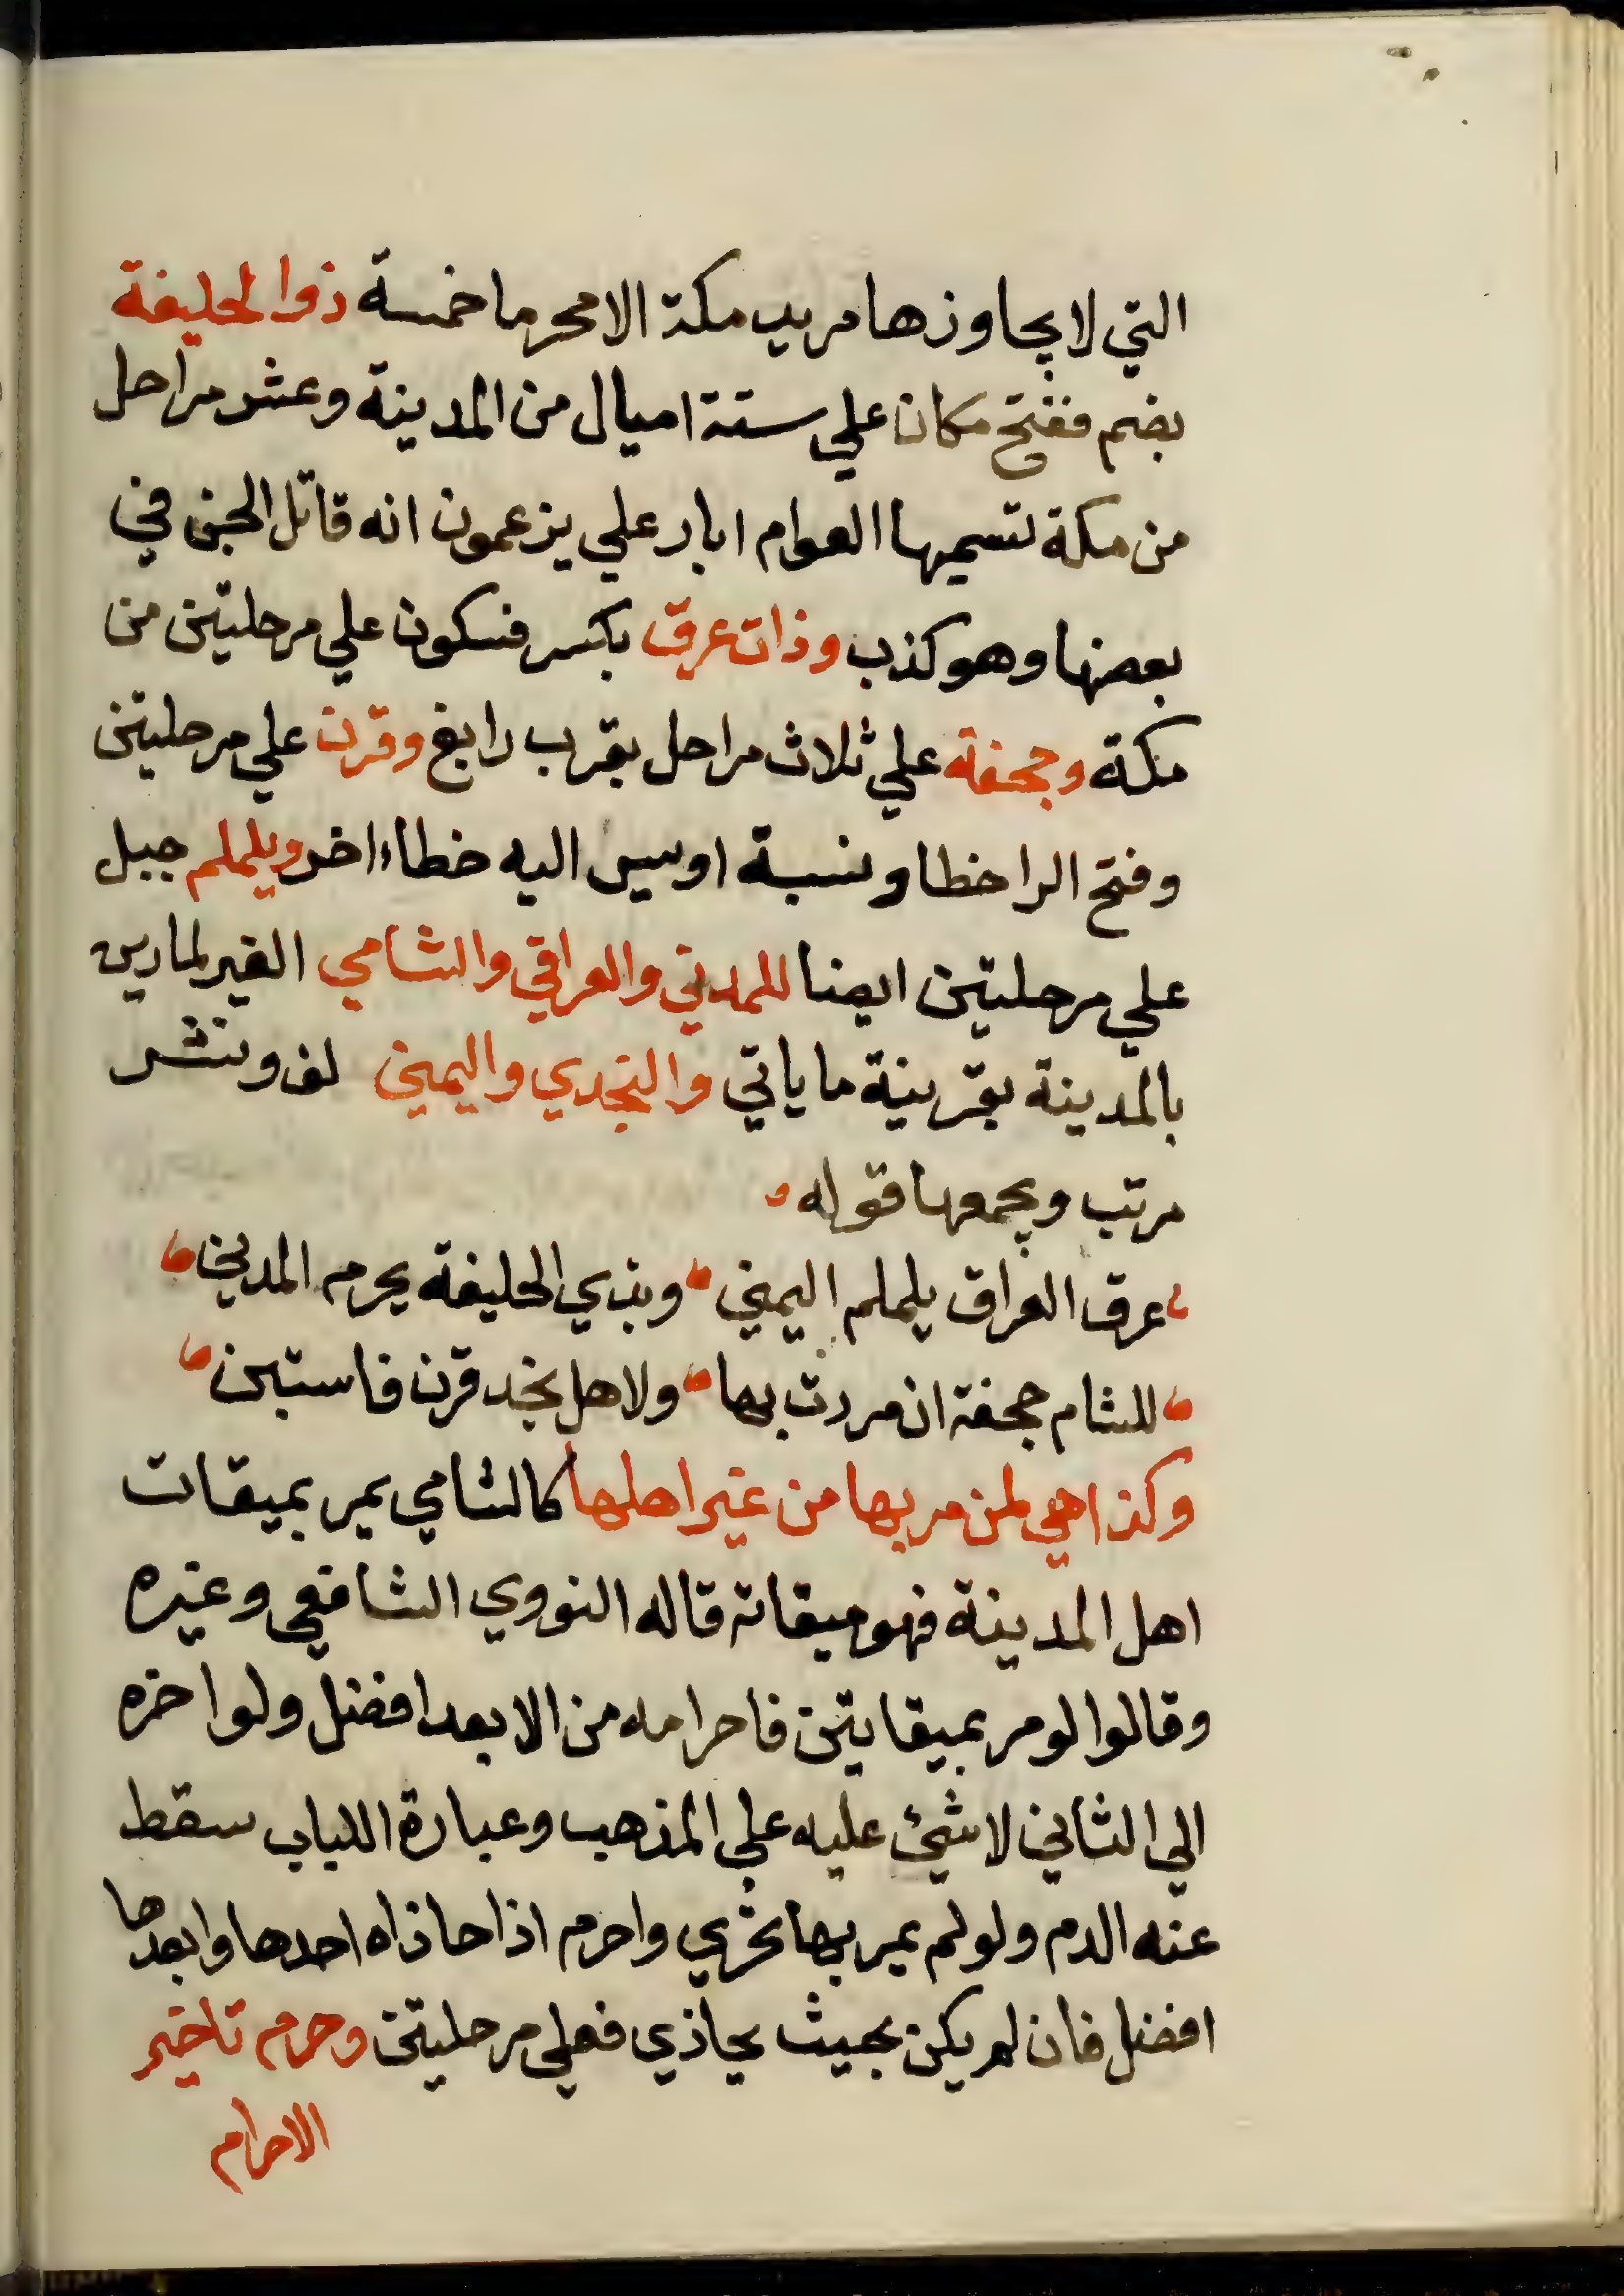 التي لا يجاوزها مريد مكة الا محرما خمسة ذوا لحليفة
بضم ففتح مكان علي ستة اميال من المدينة وعشر مراحل
من مكة تسميها العوام ابار علي يزعمون انه قاتل الجن في
بعضها وهو كذب وذات عرق بكسر فسكون علي مرحلتين من
مكة وجحفة علي ثلاث مراحل بقرب رابغ وقرن علي مرحلتين
وفتح الرا خطا ونسبة اويس اليه خطاء اخر ويلملم جبل
علي مرحلتين ايضا للمدني والعراقي والشامي الغير لمارين
بالمدينة بقرينة ما ياتي والنجدي واليمني لف ونشر
مرتب ويجمعها قوله
عرق العراق يلملم اليمني وبذي الحليفة يحرم المدني
للشام جحفة ان مررت بها ولاهل نجد قرن فاستبن
وكذا هي لمن مر بها من غير اهلها كالشامي يمر بميقات
اهل المدينة فهو ميقاته قاله النووي الشافعي وغيره
وقالوا لو مر بميقاتين فاحرامه من الابعد افضل ولو اخره
الي الثاني لا شيئ عليه علي المذهب وعبارة اللباب سقط
عنه الدم ولو لم يمر بها تحري واحرم اذا حاذاه احدها وابعدها
افضل فان لم يكن بحيث يحاذي فعلي مرحلتين وحرم تاخير
الاحرام